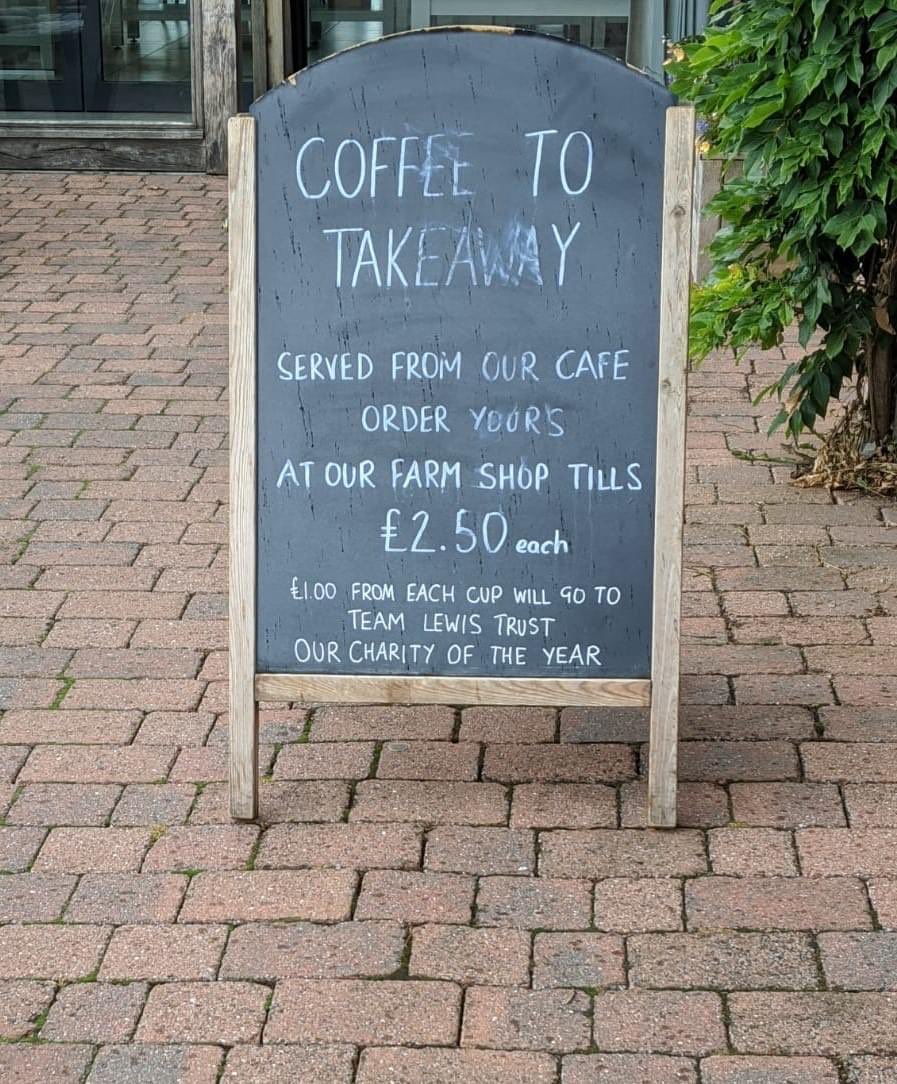 COFFEE TO
TAKEAWAY
SERVED FROM OUR CAFE
ORDER YOUR'S
AT OUR FARM SHOP TILLS
£2.50 each
£1.00 FROM EACH CUP WILL GO TO
TEAM LEWIS TRUST
OUR CHARITY OF THE YEAR